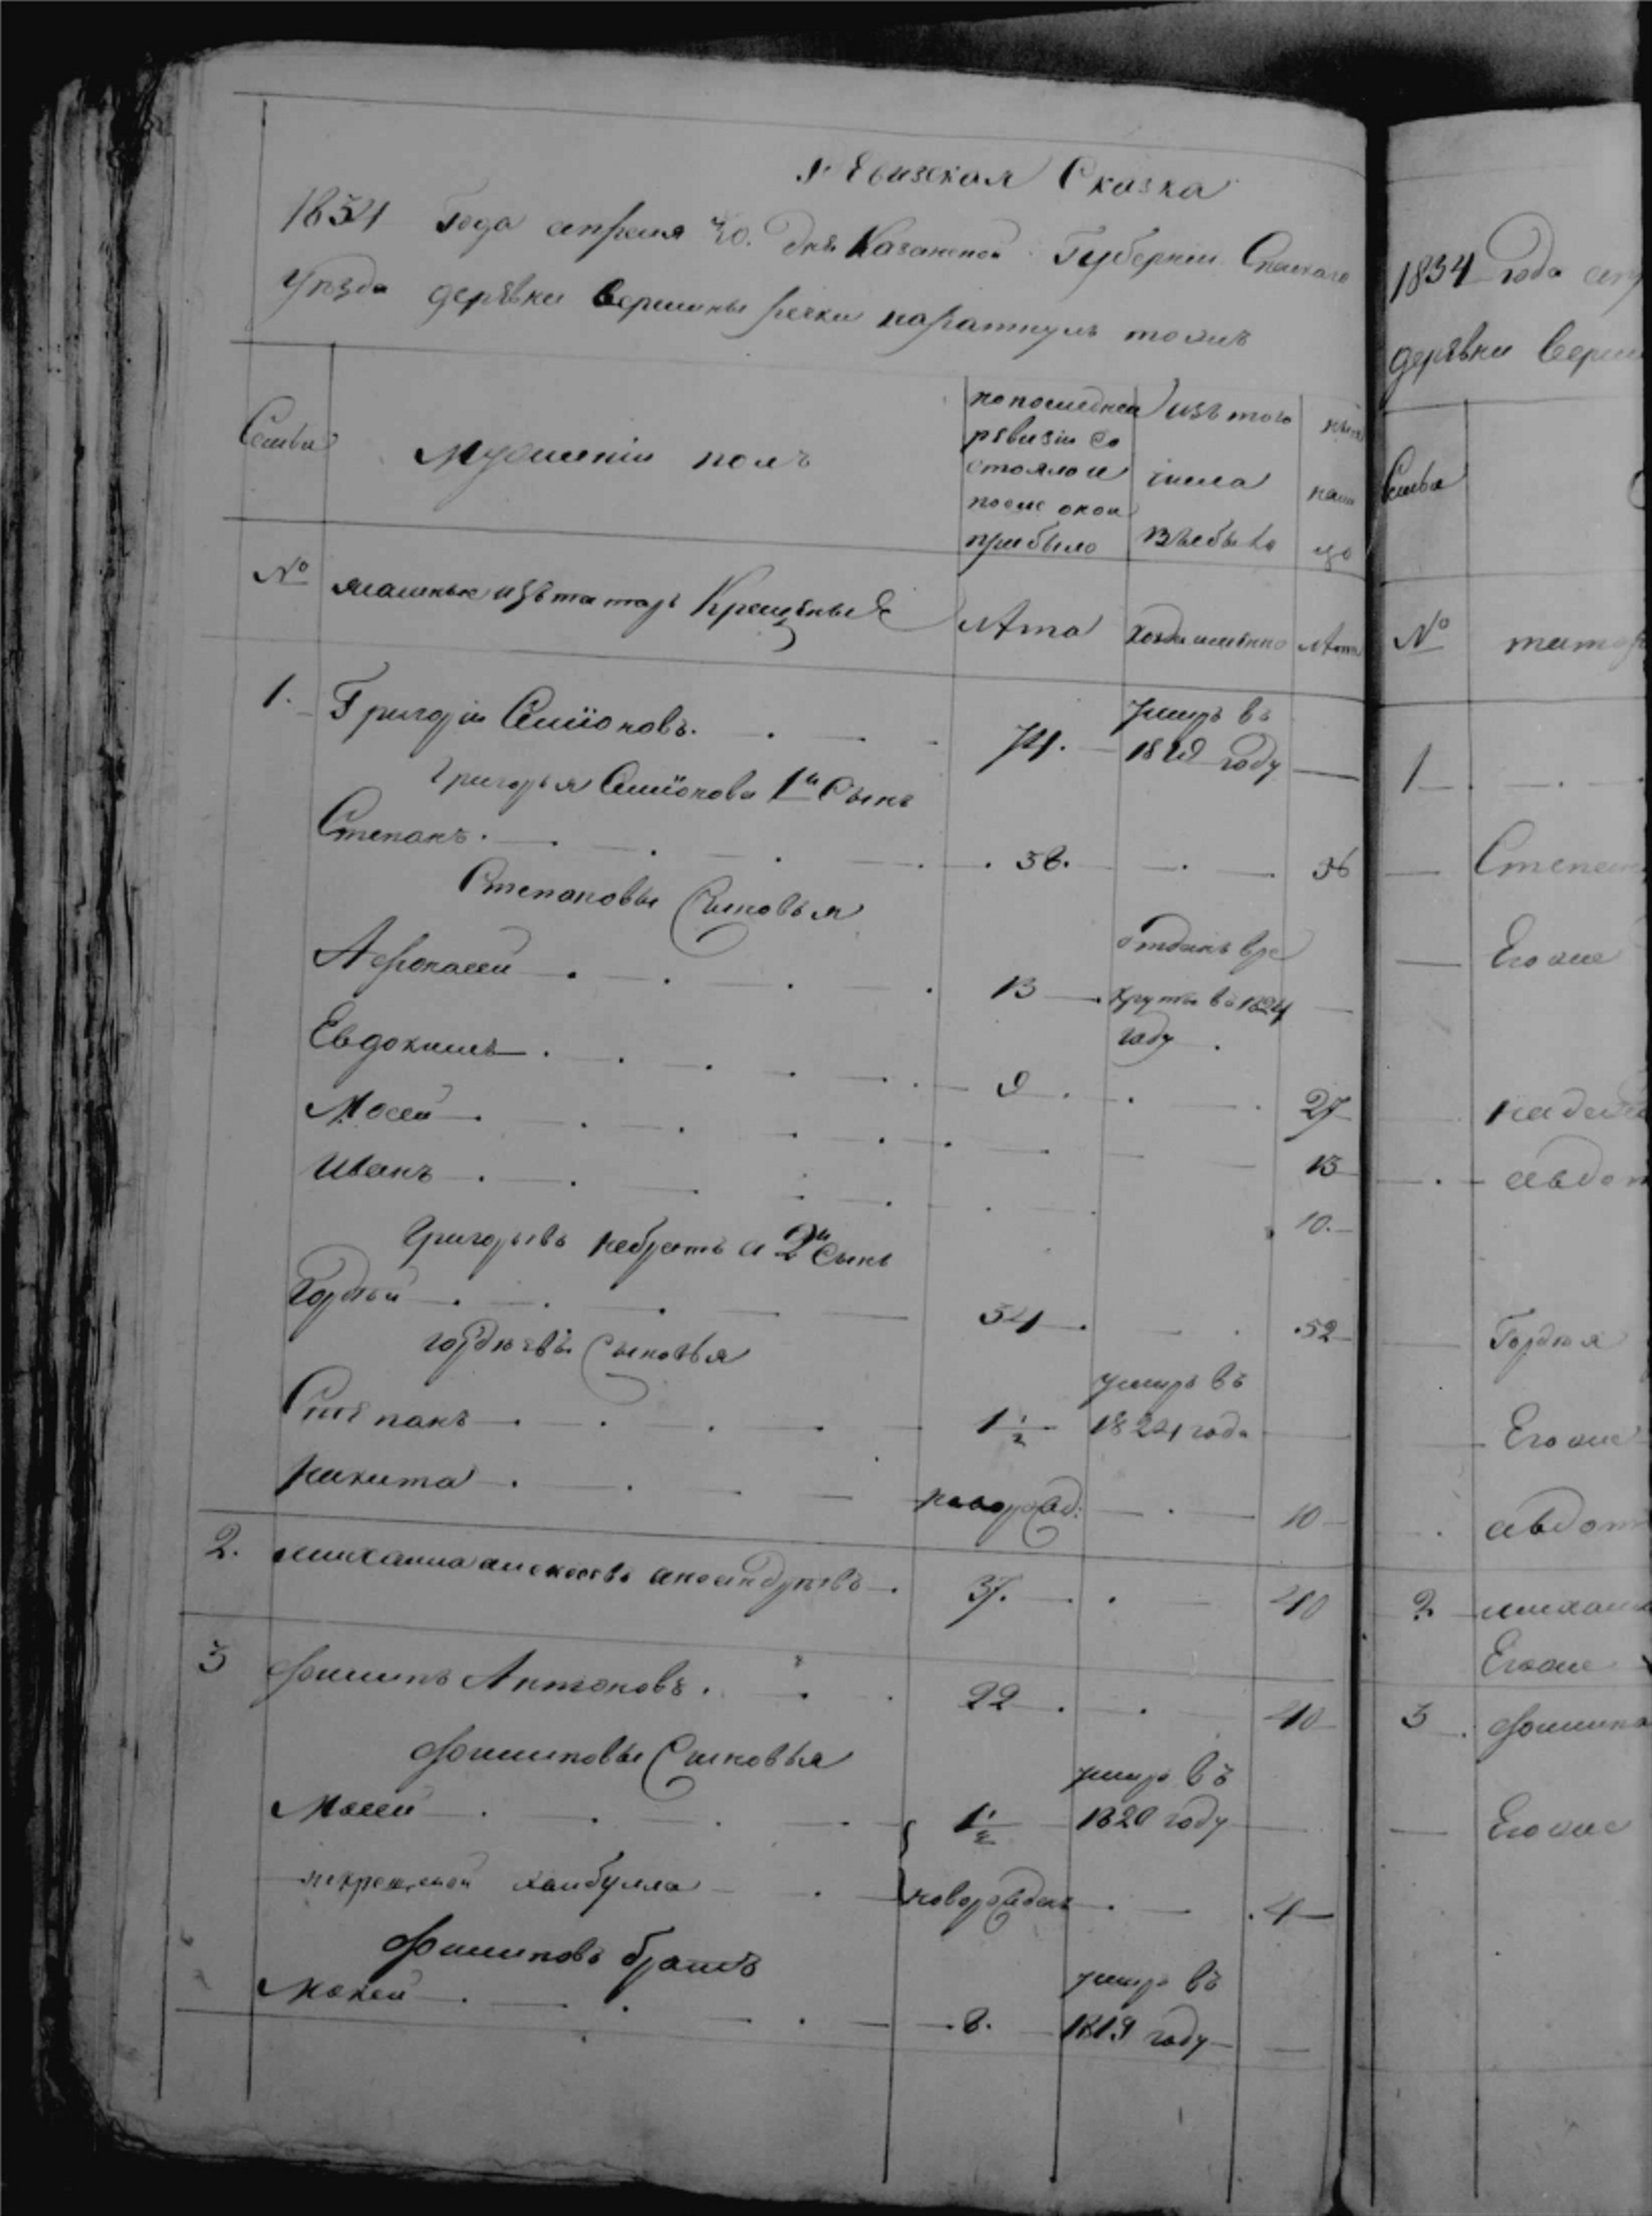 Ревизская Сказка
1834 Года апреля 30. дня Казанской Губернии Спаскаго
уѣзда деревни Вершины речки
Семьи
Мужеский полъ
по последней
ревизии со
стояло и
после оной
прибыло
Изъ того
числа
выбыло
ныне
на ли
цо
№ ясашные изъ татаръ Крещеные
Лѣта
Когда именно
Лѣта
1. Григорий Семионовъ. 74. умеръ въ 1828 году
Григорья Семионова 1й Сынъ
Степанъ. 38. 56
Степановы Сыновья
Афонасей 13 отданъ в ре
круты въ 1824
году
Евдокимъ 9 27
Мосей 13
Иванъ 10.
Григорьевъ а 2й Сынъ
Гордѣй 34 52
Гордѣевы Сыновья
Степанъ 1 1/2 умеръ въ
1824 года
Никита новорожд: 10
2. Михаила Алексеевъ 37. 40
3 Филипъ Антоновъ. 22 40
Филиповы Сыновья
Мосей 1 1/2 умеръ въ
1820 году
некрещеной Хаибулла новорожденъ 4
Филиповъ братъ
Мокей 8. умеръ въ
1819 году
1834 года
деревни
Семьи
№
1
Степан
Его же
Авдот
Гордѣя
Его же
Авдот
2 Михаил
Его же
3 Филипа
Его же